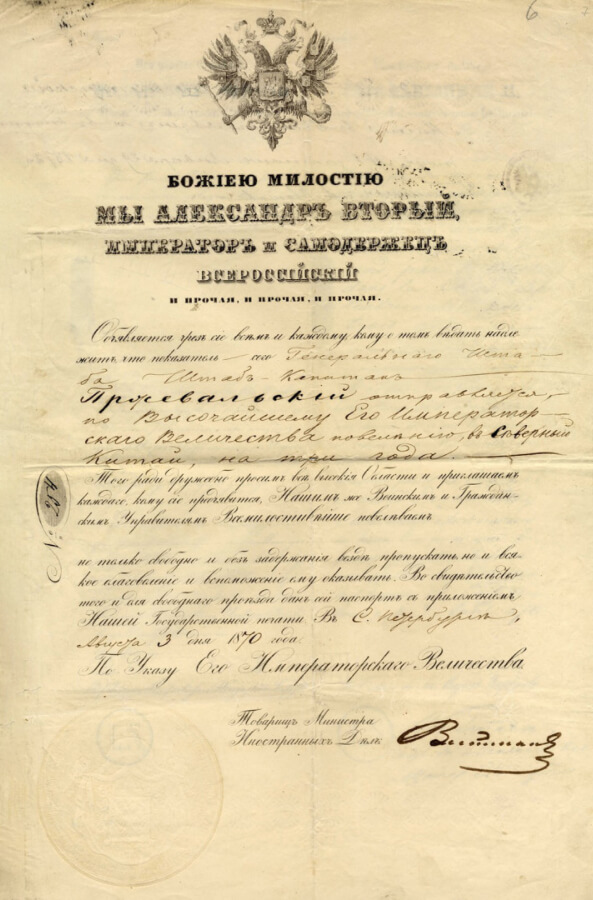 6
БОЖІЕЮ МИЛОСТІЮ
МЫ АЛЕКСАНДРЪ ВТОРЫЙ,
ИМПЕРАТОРЪ и САМОДЕРЖЕЦЪ
ВСЕРОССІЙСКІЙ
И ПРОЧАЯ, И ПРОЧАЯ, И ПРОЧАЯ.
Объявляется чрезъ сіе всѣмъ и каждому, кому о томъ вѣдать надле
житъ, что показатель сего Генеральнаго Шта-
ба Штабъ-Капитанъ
Пржевальскій отправляется,
по Высочайшему Его Император-
скаго Величества повелѣнію, въ Сѣверный
Китай, на три года.
Того ради дружебно просимъ всѣ высокія Области и приглашаемъ
каждаго, кому сіе предъявится, Нашимъ же Воинскимъ и Граждан-
скимъ Управителямъ Всемилостивѣйше повелѣваемъ
не только свободно и безъ задержанія вездѣ пропускать, но и вся
кое благоволеніе и вспоможеніе ему оказывать. Во свидѣтельство
того и для свободнаго проѣзда данъ сей паспортъ съ приложеніемъ
Нашей Государственной печати Въ С. Петербургѣ,
Августа 3 дня 1870 года.
По Указу Его Императорскаго Величества.
Товарищъ Министра
Иностранныхъ Дѣлъ